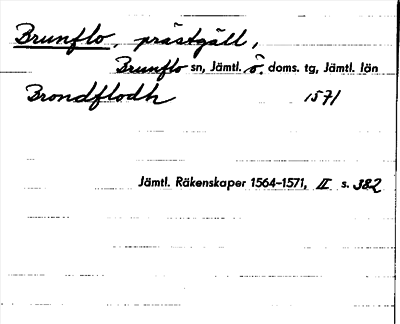 Brunflo, prästgäll,
Brunflo sn, Jämtl. ö. doms. tg, Jämtl. län
Brondflodh 1571
Jämtl. Räkenskaper 1564–1571, II s. 382